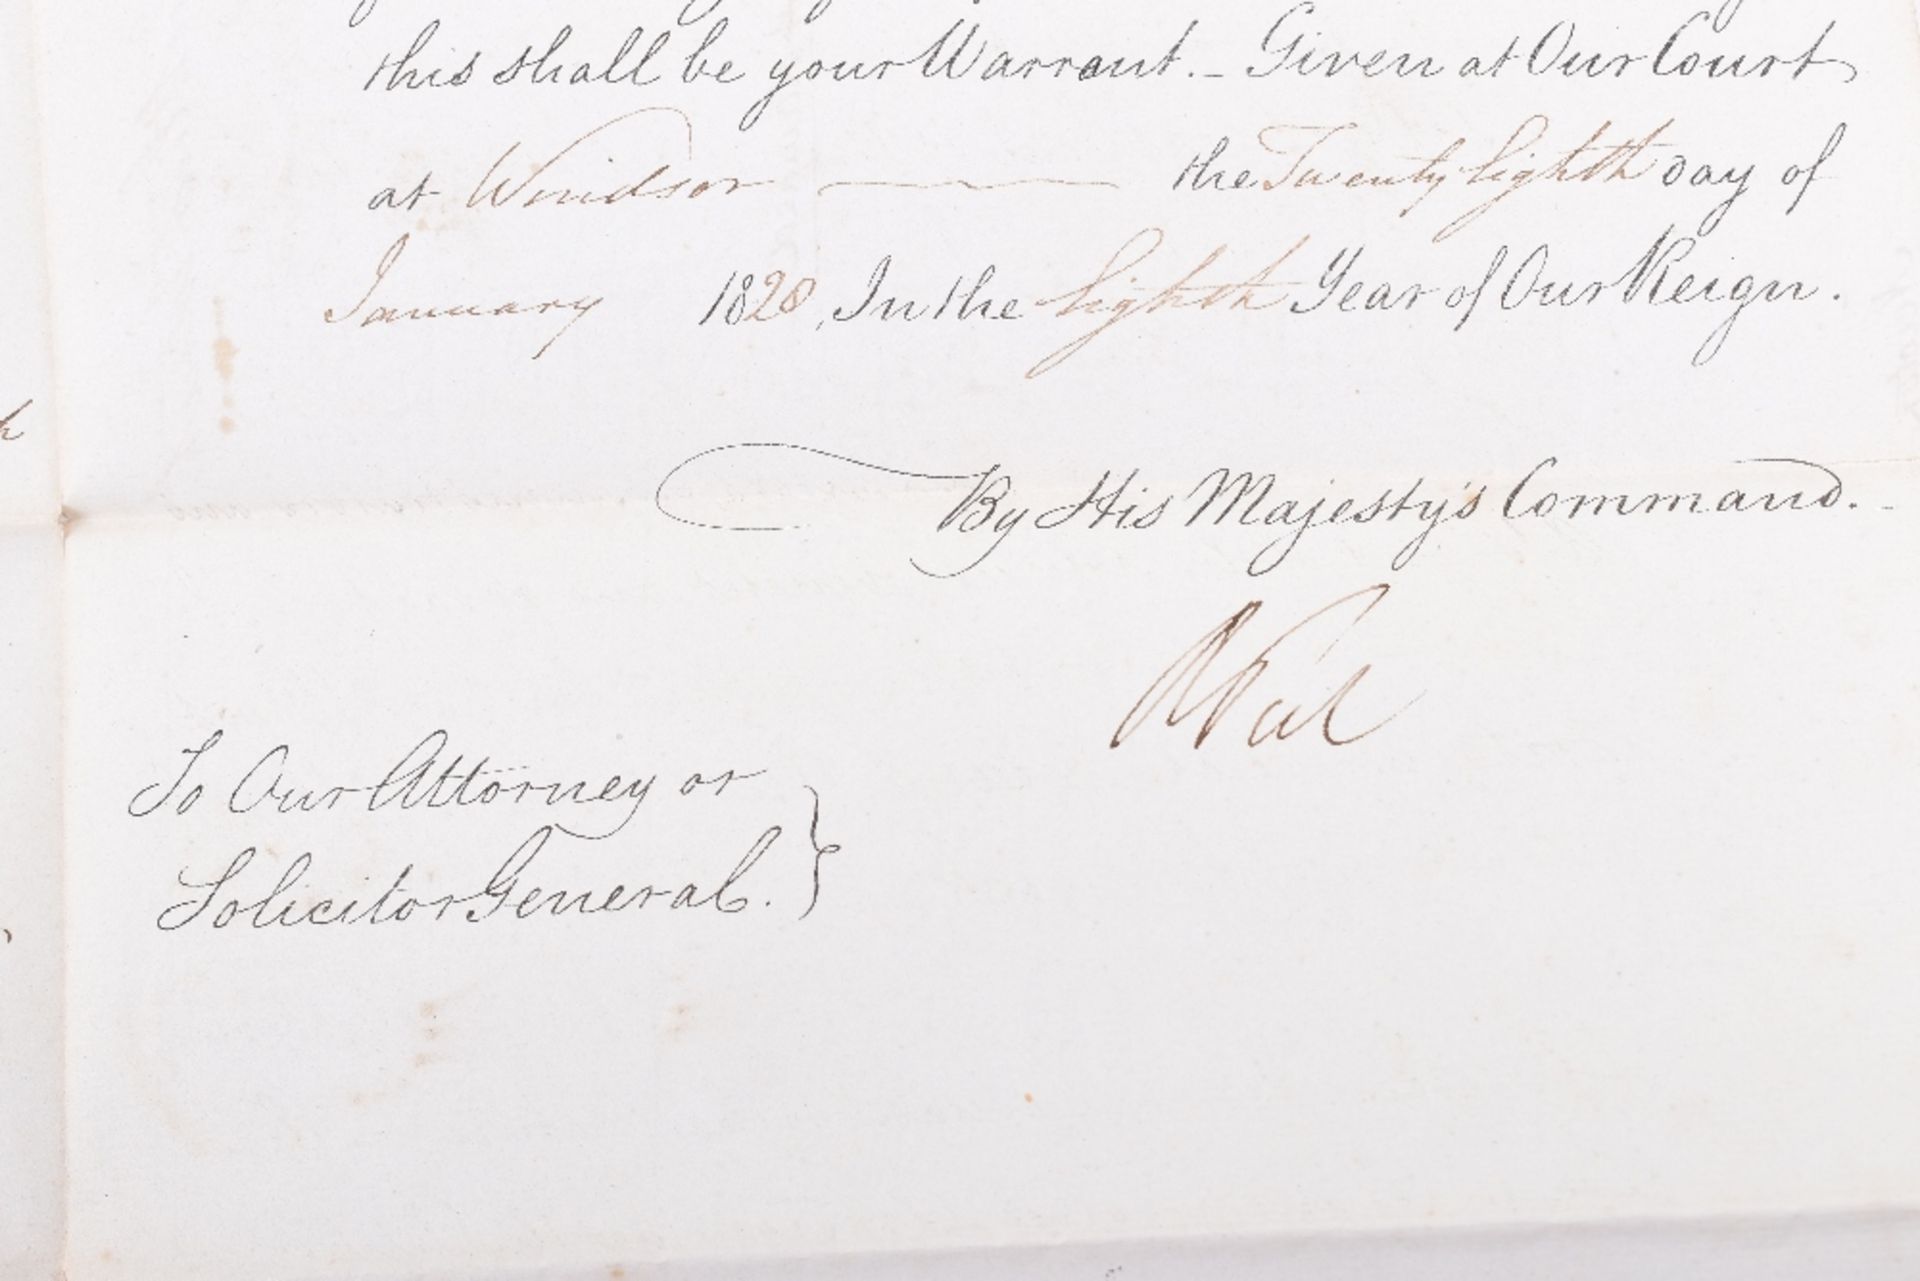 this shall be your Warrant. – Given at Our Court
at Windsor —— the Twenty Eighth day of
January 1828, In the Eighth Year of Our Reign.
By His Majesty's Command. –
R Peel
To Our Attorney or
Solicitor General. }